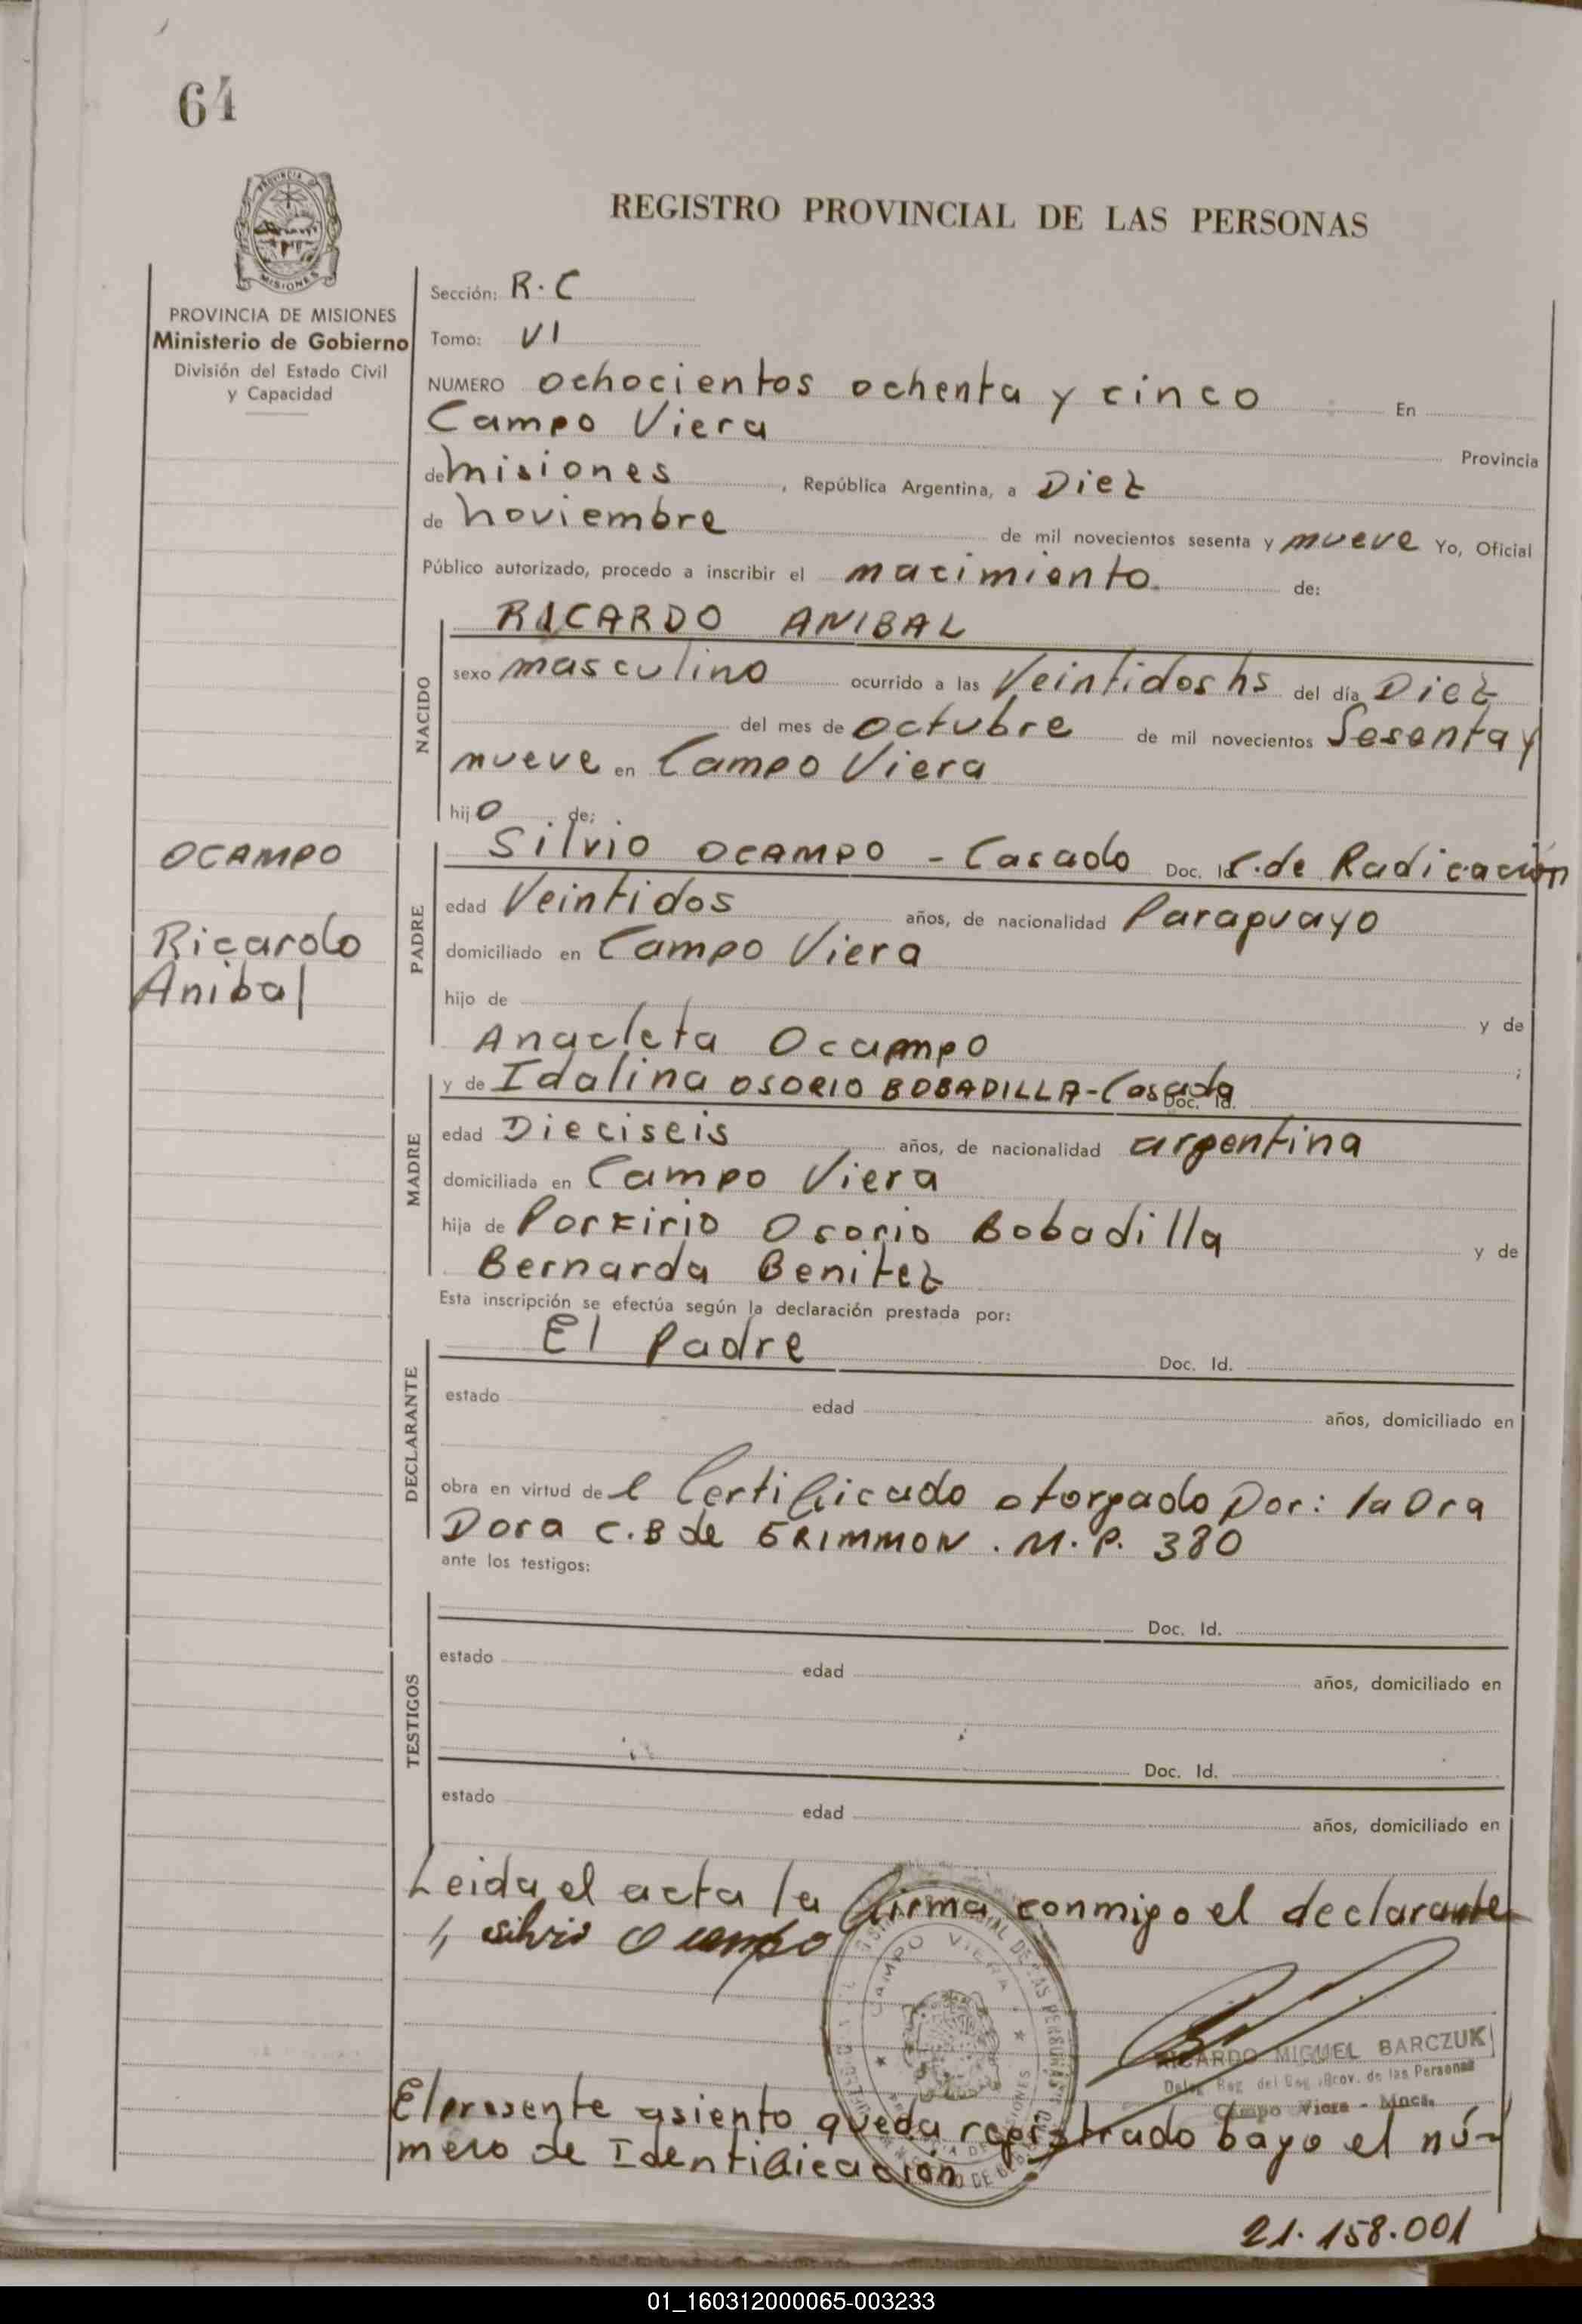 64
REGISTRO PROVINCIAL DE LAS PERSONAS
PROVINCIA DE MISIONES
MISIONES
PROVINCIA DE MISIONES
Ministerio de Gobierno
División del Estado Civil
y Capacidad
Sección: R.C
Tomo: VI
NUMERO ochocientos ochenta y cinco En
Campo Viera Provincia
de misiones, República Argentina, a Diez
de noviembre de mil novecientos sesenta y nueve Yo, Oficial
Público autorizado, procedo a inscribir el nacimiento de:
NACIDO
RICARDO ANIBAL
sexo masculino ocurrido a las Veintidos hs del día Diez
del mes de octubre de mil novecientos Sesenta y
nueve en Campo Viera
hijo de:
OCAMPO
Ricardo
Anibal
PADRE
Silvio OCAMPO - Casado Doc. Id. C. de Radicación
edad Veintidos años, de nacionalidad Paraguayo
domiciliado en Campo Viera
hijo de y de
Anacleta Ocampo ;
MADRE
y de Idalina OSORIO BOBADILLA - Casada Doc. Id.
edad Dieciseis años, de nacionalidad argentina
domiciliada en Campo Viera
hija de Porfirio Osorio Bobadilla y de
Bernarda Benitez
Esta inscripción se efectúa según la declaración prestada por:
DECLARANTE
El Padre Doc. Id.
estado edad años, domiciliado en
obra en virtud de l Certificado otorgado por: la Dra
Dora C. B de GRIMMON. M. P. 380
ante los testigos:
TESTIGOS
Doc. Id.
estado edad años, domiciliado en
Doc. Id.
estado edad años, domiciliado en
Leida el acta la firma conmigo el declarante
silvio Ocampo
CAMPO VIERA
RICARDO MIGUEL BARCZUK
Deleg. Reg. del Reg. Prov. de las Personas
Campo Viera - Mnes.
El presente asiento queda registrado bayo el nú-
mero de Identificación
21.158.001
01_160312000065-003233